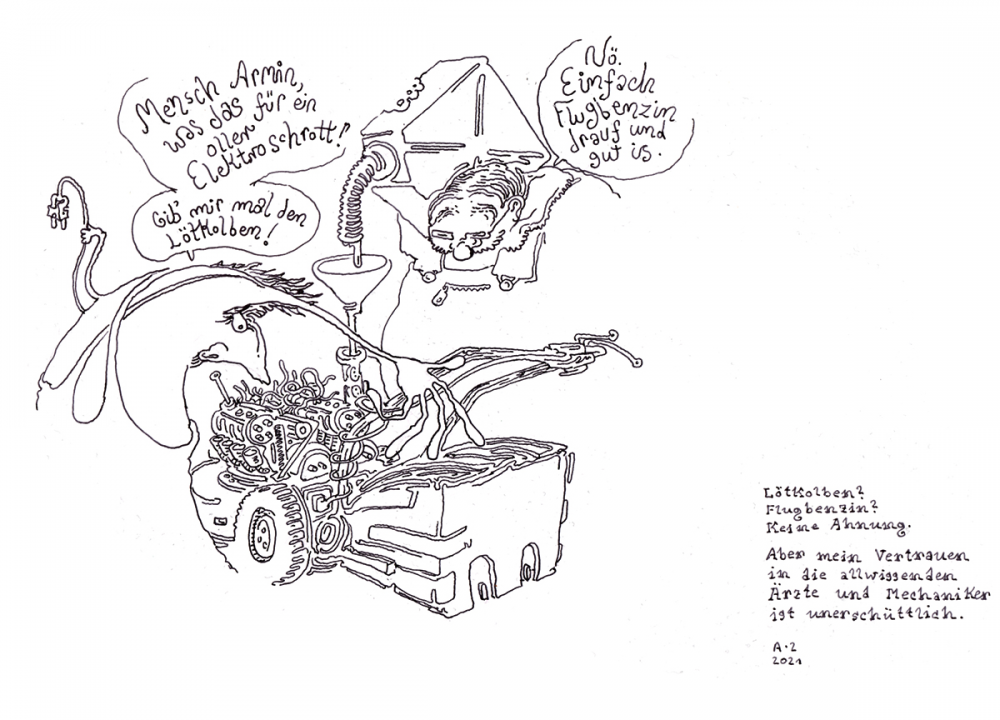 Mensch Armin,
was das für ein
oller
Elektroschrott!
Gib' mir mal den
Lötkolben!
Nö.
Einfach
Flugbenzin
drauf und
gut is.
Lötkolben?
Flugbenzin?
Keine Ahnung.
Aber mein Vertrauen
in die allwissenden
Ärzte und Mechaniker
ist unerschüttlich.
A·2
2021